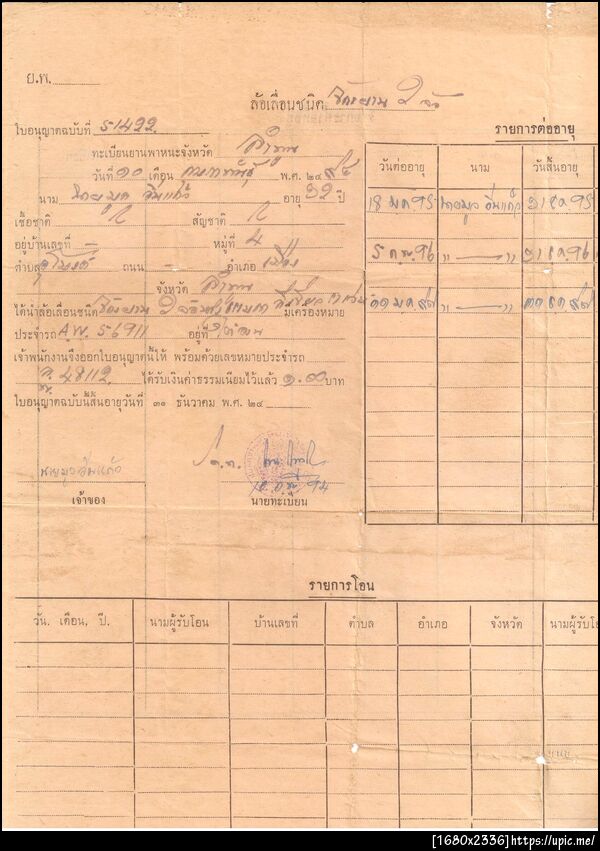 ย.พ.
ล้อเลื่อนชนิด จักรยาน ๒ ล้อ
ใบอนุญาตฉบับที่ 51422
รายการต่ออายุ
ทะเบียนยานพาหนะจังหวัด ลำพูน
วันที่ ๑๐ เดือน กุมภาพันธ์ พ.ศ. ๒๔๙๔
วันต่ออายุ นาม วันสิ้นอายุ
นาม นายมูล อายุ 32 ปี
18 มค 95 นายมูล 31 ธค. 95
เชื้อชาติ ไ สัญชาติ ไ
อยู่บ้านเลขที่ – หมู่ที่ 4
5 กพ 96 " — " 31 ธค. 96
ตำบล อุโมงค์ ถนน อำเภอ เมือง
จังหวัด ลำพูน
ได้นำล้อเลื่อนชนิด จักรยาน 2 ล้อ มีเครื่องหมาย
๑๑ มค ๙๗ " — " ๓๑ ธค ๙๗
ประจำรถ A.W. 56911 อยู่ที่
เจ้าพนักงานจึงออกใบอนุญาตนี้ให้ พร้อมด้วยเลขหมายประจำรถ
48112 ได้รับเงินค่าธรรมเนียมไว้แล้ว ๑.๐๐ บาท
ใบอนุญาตฉบับนี้สิ้นอายุวันที่ ๓๑ ธันวาคม พ.ศ. ๒๔
เจ้าของ นายทะเบียน
รายการโอน
วัน, เดือน, ปี. นามผู้รับโอน บ้านเลขที่ ตำบล อำเภอ จังหวัด นามผู้รับโอ
[1680x2336]https://upic.me/